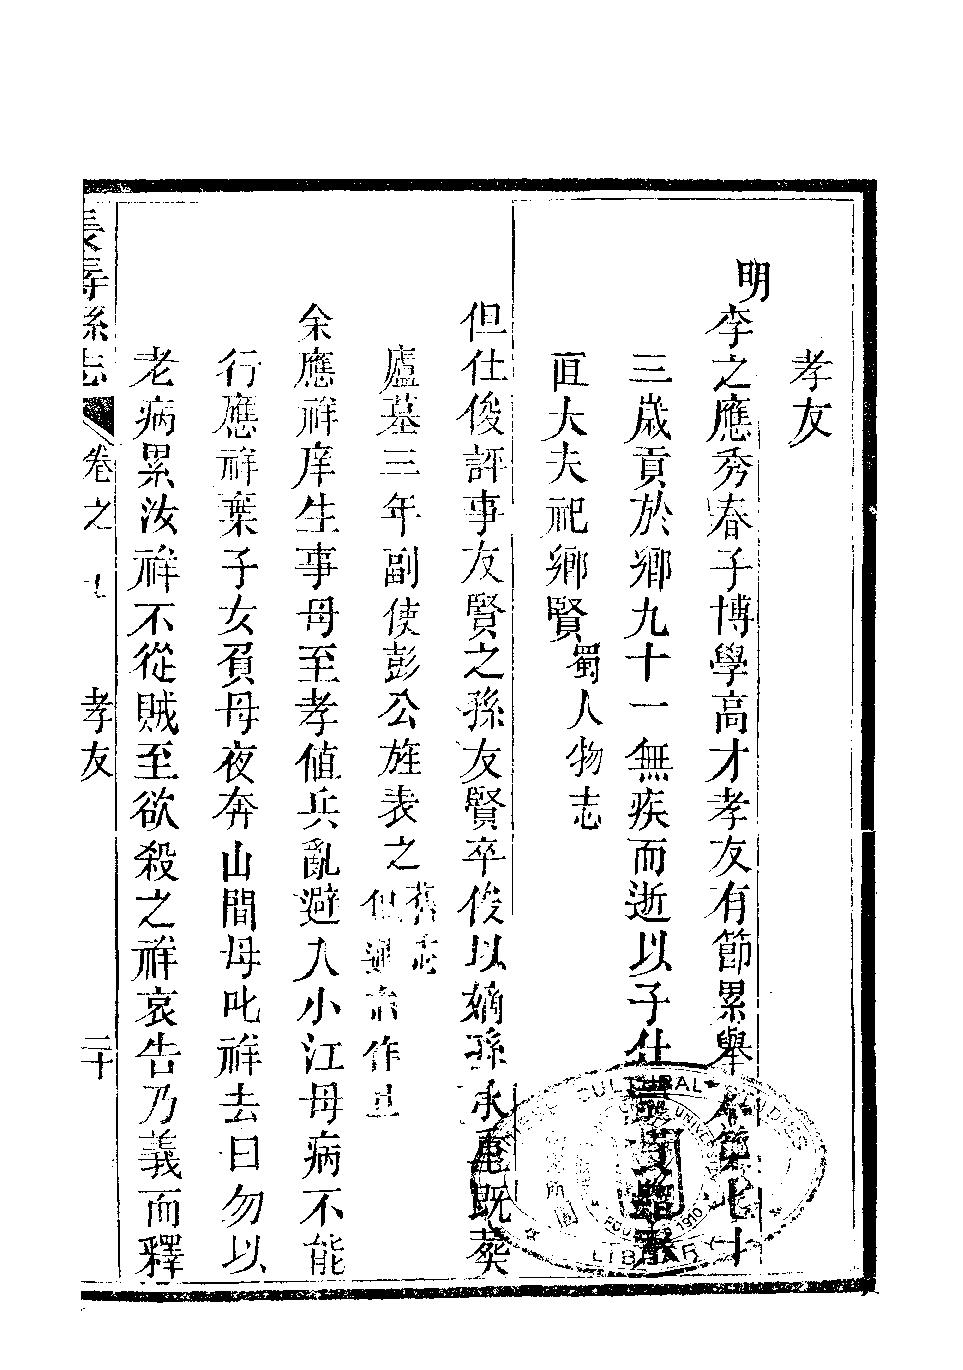 孝友
明
李之應秀春子博學高才孝友有節累舉不第七十
三歲貢於鄉九十一無疾而逝以子仕
直大夫祀鄉賢蜀人物志
但仕俊評事友賢之孫友賢卒俊以嫡孫承重既葬
廬墓三年副使彭公旌表之舊志
作
余應祥庠生事母至孝值兵亂避入小江母病不能
行應祥棄子女負母夜奔山間母叱祥去曰勿以
老病累汝祥不從賊至欲殺之祥哀告乃義而釋
長壽縣志
卷之七
孝友
二十
CULTURAL
LIBRARY
1910